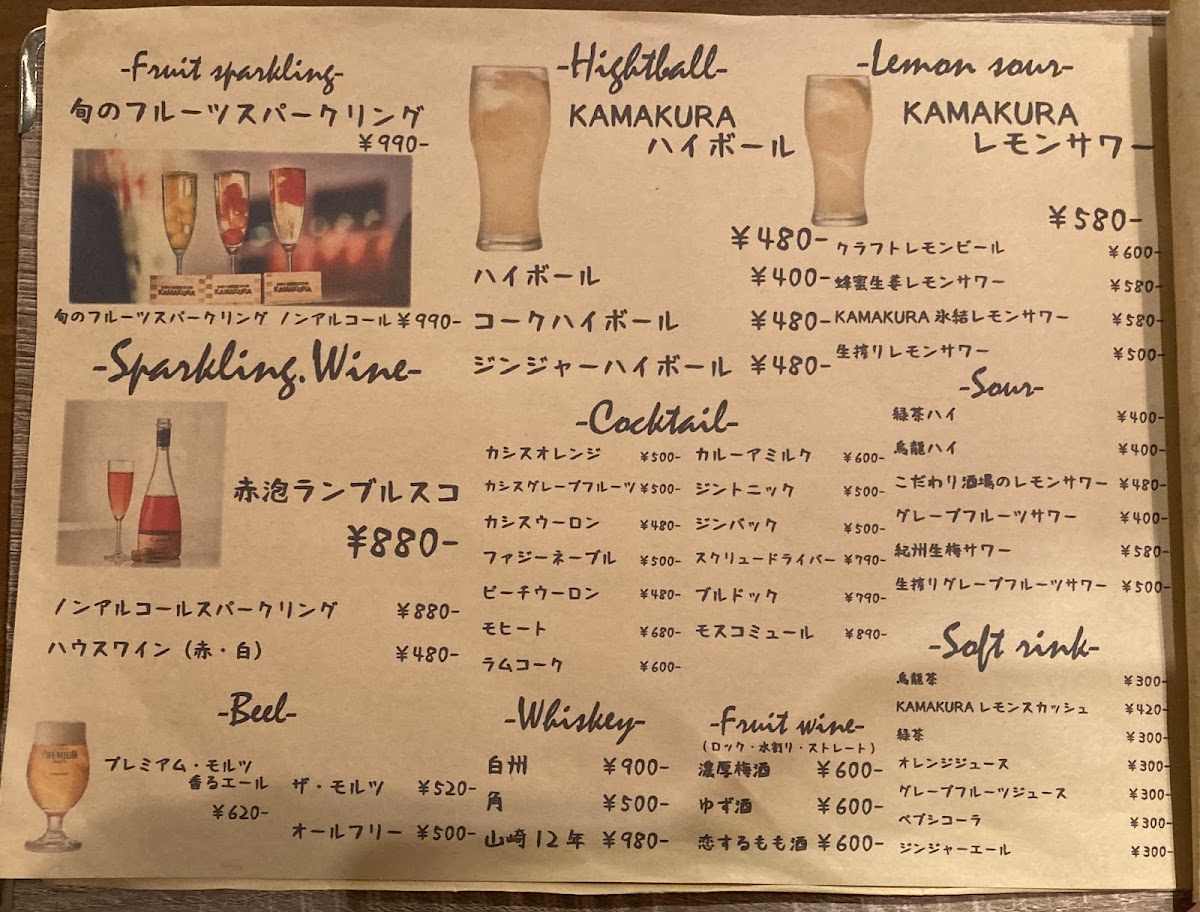 -Fruit sparkling-
旬のフルーツスパークリング
¥990-
KAMAKURA KAMAKURA KAMAKURA
旬のフルーツスパークリング ノンアルコール ¥990-
-Sparkling.Wine-
赤泡ランブルスコ
¥880-
ノンアルコールスパークリング ¥880-
ハウスワイン（赤・白） ¥480-
-Beel-
PREMIUM
プレミアム・モルツ
香るエール
¥620-
ザ・モルツ ¥520-
オールフリー ¥500-
-Hightball-
KAMAKURA
ハイボール
¥480-
ハイボール ¥400-
コークハイボール ¥480-
ジンジャーハイボール ¥480-
-Cocktail-
カシスオレンジ ¥500-
カシスグレープフルーツ ¥500-
カシスウーロン ¥480-
ファジーネーブル ¥500-
ピーチウーロン ¥480-
モヒート ¥680-
ラムコーク ¥600-
カルーアミルク ¥600-
ジントニック ¥500-
ジンバック ¥500-
スクリュードライバー ¥790-
ブルドック ¥790-
モスコミュール ¥890-
-Whiskey-
白州 ¥900-
角 ¥500-
山崎12年 ¥980-
-Fruit wine-
（ロック・水割り・ストレート）
濃厚梅酒 ¥600-
ゆず酒 ¥600-
恋するもも酒 ¥600-
-Lemon sour-
KAMAKURA
レモンサワー
¥580-
クラフトレモンビール ¥600-
蜂蜜生姜レモンサワー ¥580-
KAMAKURA 氷結レモンサワー ¥580-
生搾りレモンサワー ¥500-
-Sour-
緑茶ハイ ¥400-
烏龍ハイ ¥400-
こだわり酒場のレモンサワー ¥480-
グレープフルーツサワー ¥400-
紀州生梅サワー ¥580-
生搾りグレープフルーツサワー ¥500-
-Soft rink-
烏龍茶 ¥300-
KAMAKURA レモンスカッシュ ¥420-
緑茶 ¥300-
オレンジジュース ¥300-
グレープフルーツジュース ¥300-
ペプシコーラ ¥300-
ジンジャーエール ¥300-